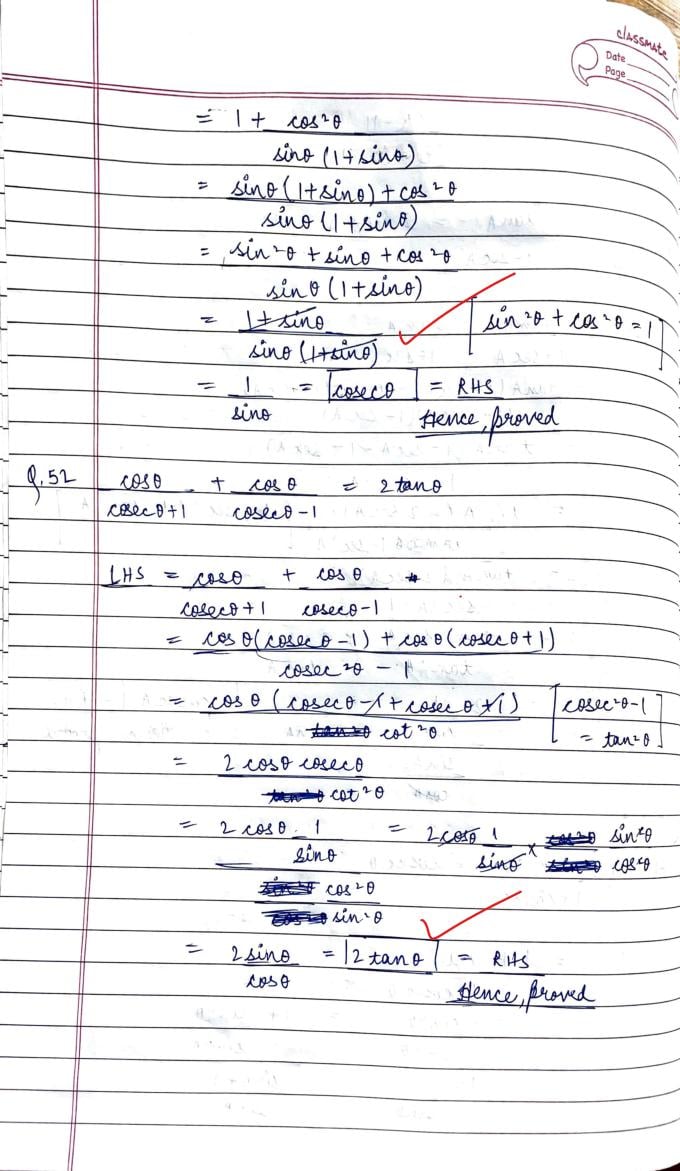 classmate
Date
Page
= 1 + cos²θ / sinθ (1+sinθ)
= sinθ (1+sinθ) + cos²θ / sinθ (1+sinθ)
= sin²θ + sinθ + cos²θ / sinθ (1+sinθ)
= 1+sinθ / sinθ (1+sinθ) [sin²θ + cos²θ = 1]
= 1 / sinθ = cosecθ = RHS
Hence, proved
Q.52 cosθ / cosecθ+1 + cosθ / cosecθ-1 = 2tanθ
LHS = cosθ / cosecθ+1 + cosθ / cosecθ-1
= cosθ(cosecθ-1) + cosθ(cosecθ+1) / cosec²θ - 1
= cosθ (cosecθ-1+cosecθ+1) / cot²θ [cosec²θ-1 = tan²θ]
= 2cosθ cosecθ / cot²θ
= 2cosθ . 1 / sinθ / cos²θ / sin²θ = 2cosθ 1 / sinθ × sin²θ / cos²θ
= 2sinθ / cosθ = 2tanθ = RHS
Hence, proved